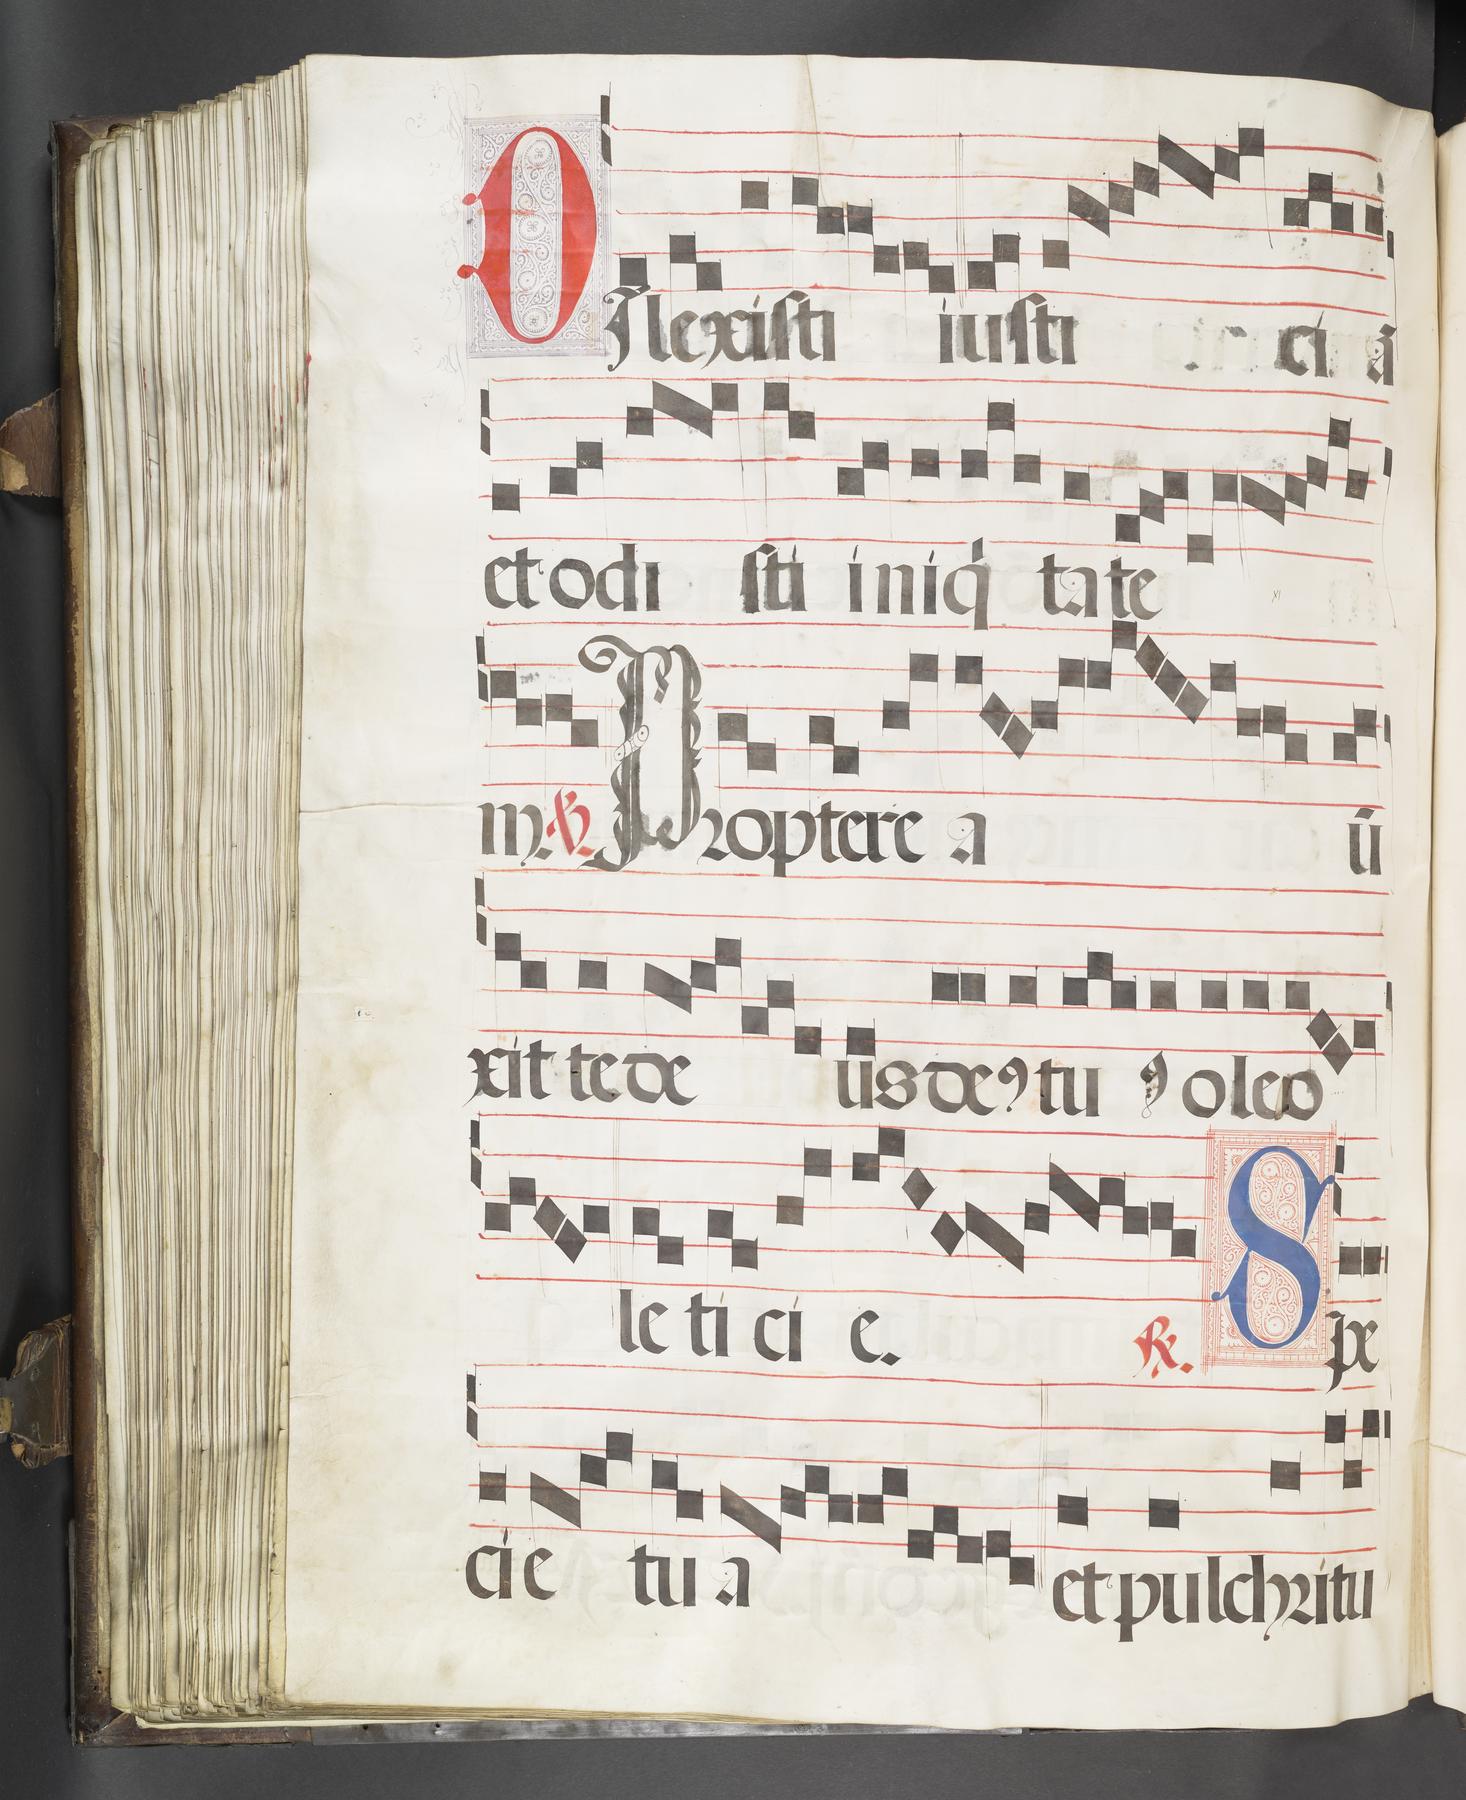 Dilexisti iusti ciā
et odi sti iniq̇ tate
m ℣. Propterea ū
xit te de us de9 tu 9 oleo
le ti ci e. ℟. Spe
cie tu a et pulchritu